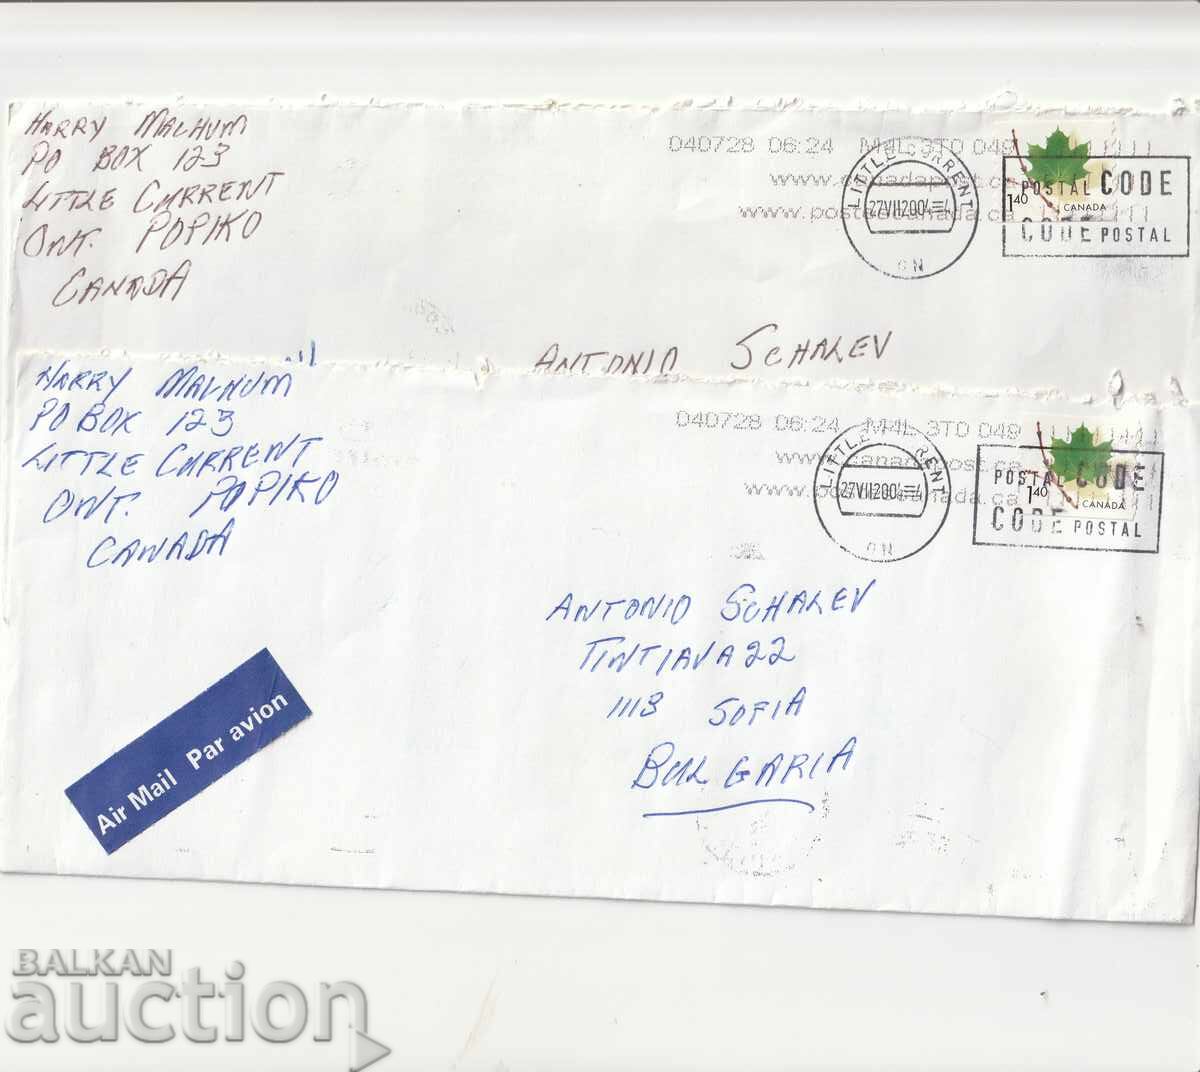 HARRY MALHUM
PO BOX 123
LITTLE CURRENT
ONT. POPIKO
CANADA
040728 06:24 M4L 3T0 049
www.canadapost.ca
www.postescanada.ca
LITTLE CURRENT
27VII2004
ON
POSTAL CODE
1.40
CANADA
CODE POSTAL
ANTONIO SCHALEV
HARRY MALHUM
PO BOX 123
LITTLE CURRENT
ONT. POPIKO
CANADA
040728 06:24 M4L 3T0 049
www.canadapost.ca
www.postescanada.ca
LITTLE CURRENT
27VII2004
ON
POSTAL CODE
1.40
CANADA
CODE POSTAL
ANTONIO SCHALEV
TINTIAVA 22
1113 SOFIA
BULGARIA
Air Mail Par avion
BALKAN
auction